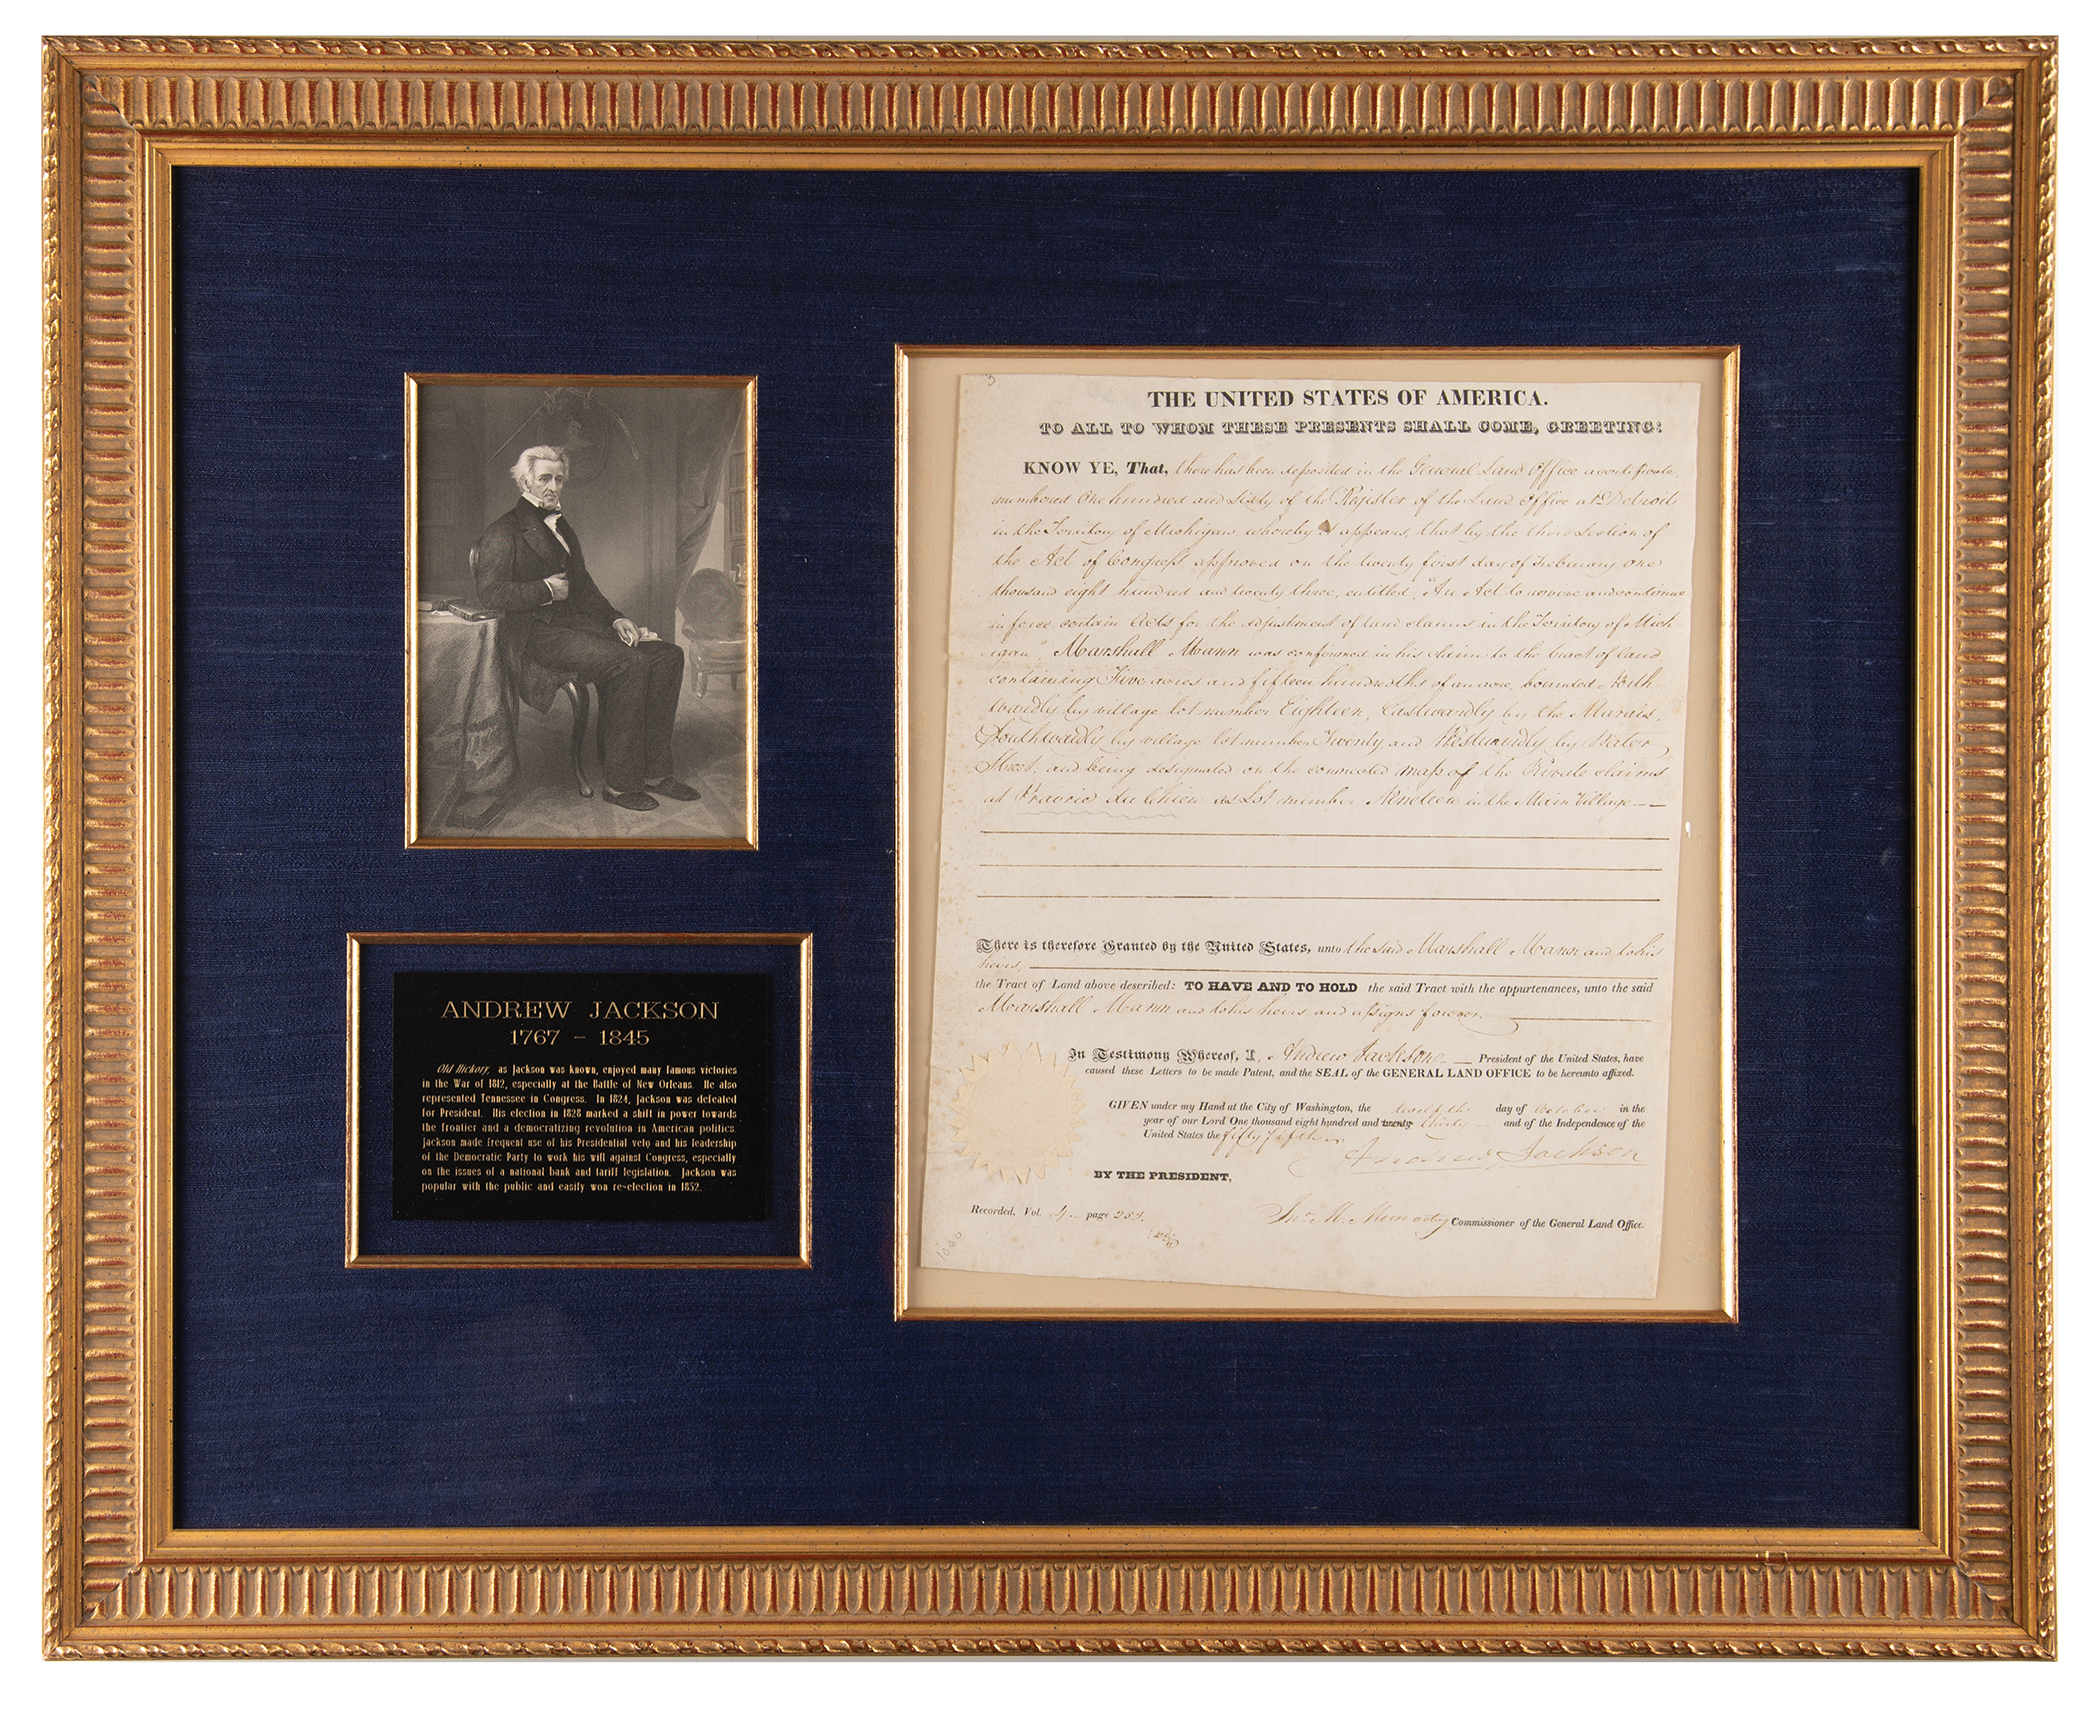 ANDREW JACKSON
1767 – 1845
Old Hickory, as Jackson was known, enjoyed many famous victories
in the War of 1812, especially at the Battle of New Orleans. He also
represented Tennessee in Congress. In 1824, Jackson was defeated
for President. His election in 1828 marked a shift in power towards
the frontier and a democratizing revolution in American politics.
Jackson made frequent use of his Presidential veto and his leadership
of the Democratic Party to work his will against Congress, especially
on the issues of a national bank and tariff legislation. Jackson was
popular with the public and easily won re-election in 1832.
3
THE UNITED STATES OF AMERICA.
TO ALL TO WHOM THESE PRESENTS SHALL COME, GREETING:
KNOW YE, That, there has been deposited in the General Land Office a certificate
numbered One hundred and Sixty of the Register of the Land Office at Detroit
in the Territory of Michigan, whereby it appears, that by the third section of
the Act of Congress, approved on the twenty first day of February One
thousand eight hundred and twenty three, entitled, "An Act to revive and continue
in force certain Acts for the adjustment of land claims in the Territory of Mich
igan", Marshall Mann was confirmed in his claim to the tract of land,
containing Five acres and fifteen hundredths of an acre, bounded North
wardly by village lot number Eighteen, Eastwardly by the Marais,
Southwardly by village lot number Twenty, and Westwardly by Water
Street; and being designated on the connected map of the Private claims
at Prairie du Chien as Lot number Nineteen in the Main Village
There is therefore Granted by the United States, unto the said Marshall Mann and to his
heirs,
the Tract of Land above described: TO HAVE AND TO HOLD the said Tract with the appurtenances, unto the said
Marshall Mann and to his heirs and assigns forever.
In Testimony Whereof, I, Andrew Jackson President of the United States, have
caused these Letters to be made Patent, and the SEAL of the GENERAL LAND OFFICE to be hereunto affixed.
GIVEN under my Hand at the City of Washington, the twelfth day of October in the
year of our Lord One thousand eight hundred and twenty thirty and of the Independence of the
United States the fifty fifth
Andrew Jackson
BY THE PRESIDENT,
Recorded, Vol. 4 page 259. Jno. M. Moore acting Commissioner of the General Land Office.
1000